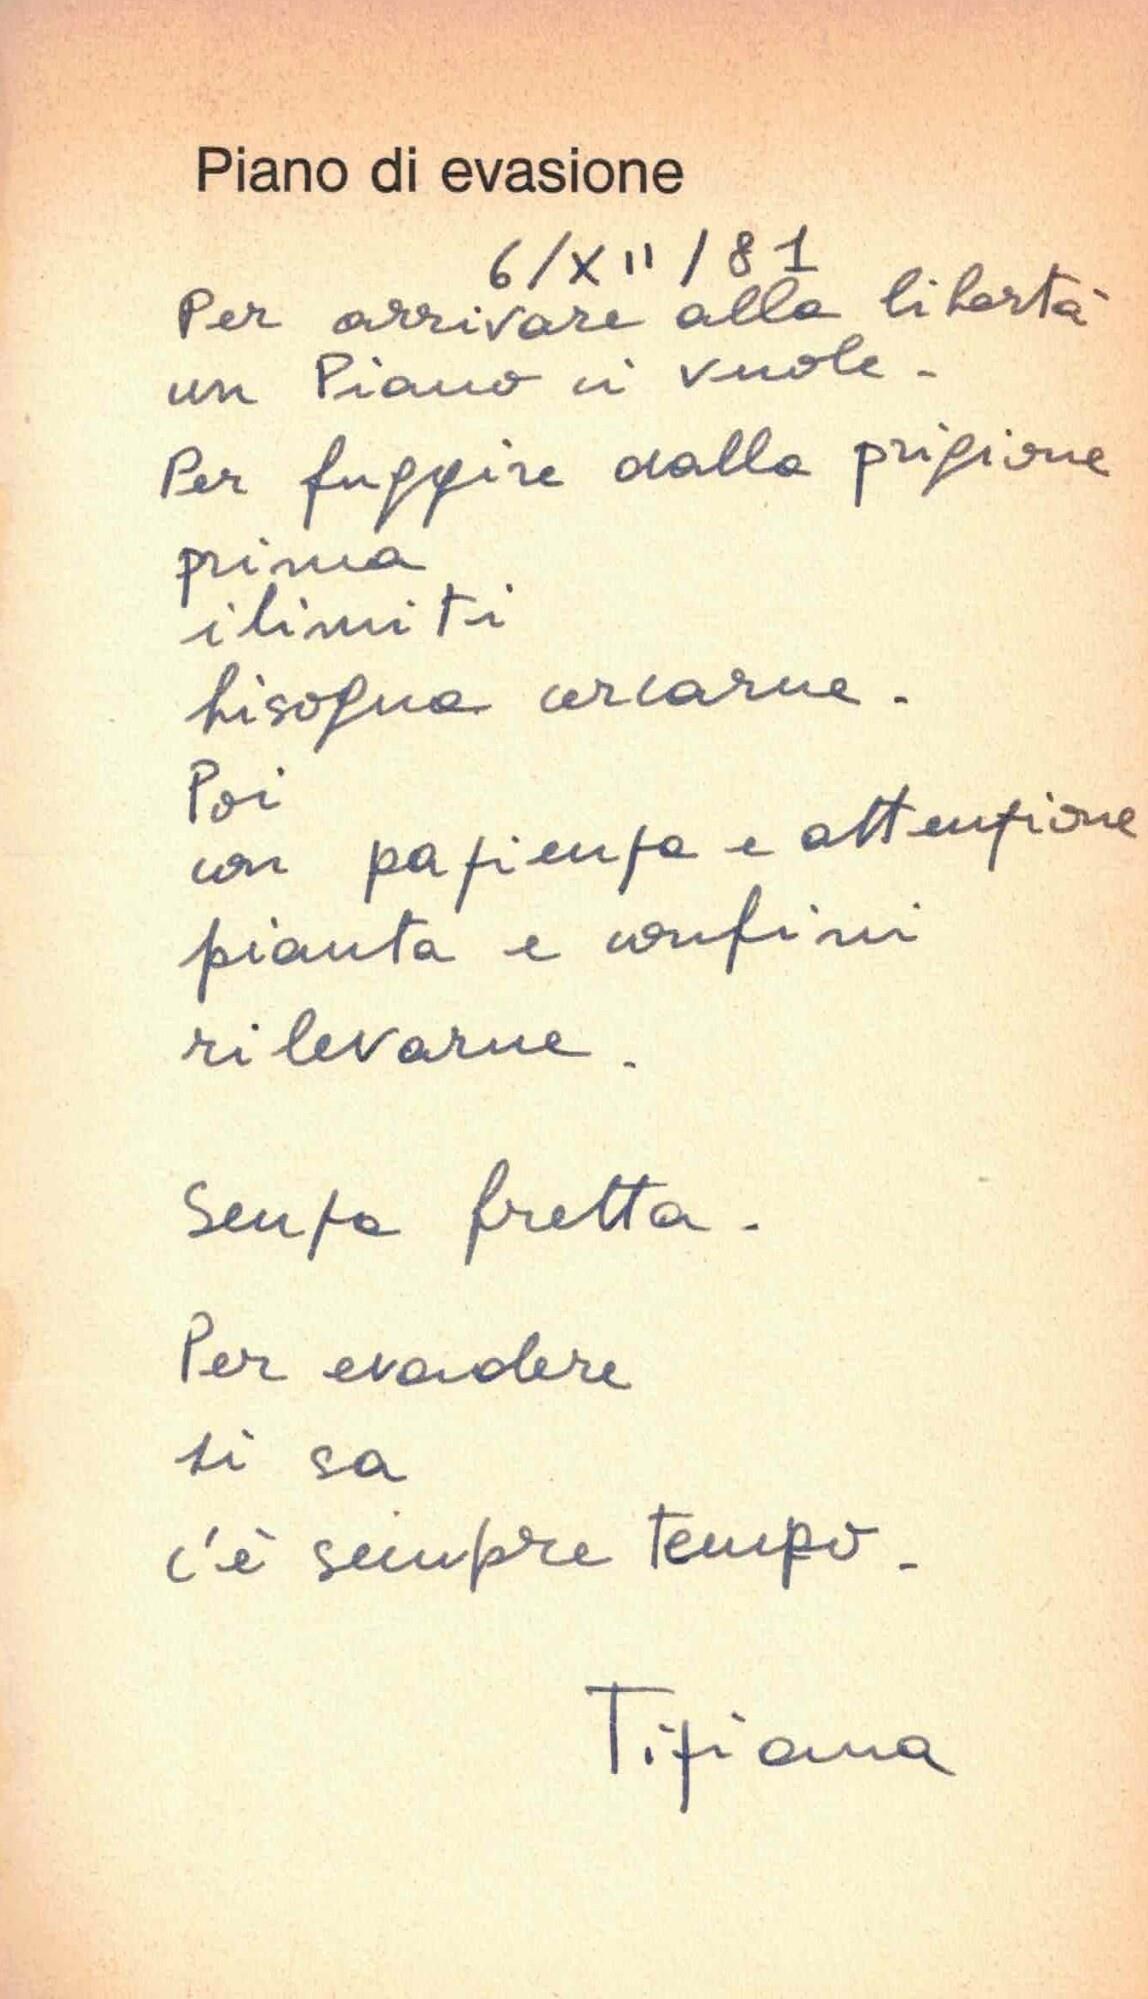 Piano di evasione
6/XII/81
Per arrivare alla libertà
un Piano ci vuole.
Per fuggire dalla prigione
prima
i limiti
bisogna cercarne.
Poi
con pazienza e attenzione
pianta e confini
rilevarne.
Senza fretta.
Per evadere
si sa
c'è sempre tempo.
Tiziana